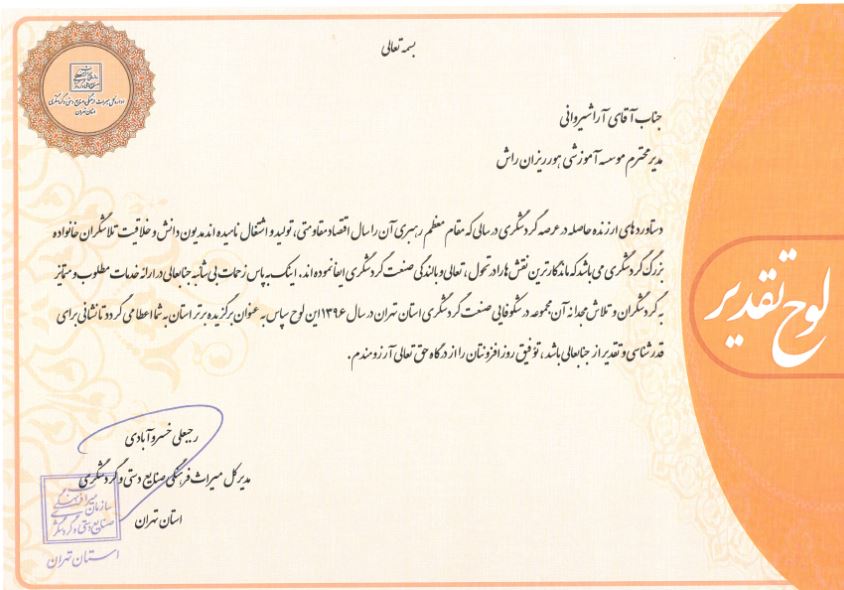 بسمه تعالی
اداره کل میراث فرهنگی، صنایع دستی و گردشگری
استان تهران
جناب آقای آراشیروانی
مدیر محترم موسسه آموزشی هورریزان راش
دستاوردهای ارزنده حاصله در عرصه گردشگری در سالی که مقام معظم رهبری آن را سال اقتصاد مقاومتی، تولید و اشتغال نامیده اند مدیون دانش و خلاقیت تلاشگران خانواده
بزرگ گردشگری می باشد که ماندگارترین نقش ها را در تحول، تعالی و بالندگی صنعت گردشگری ایفا نموده اند. اینک به پاس زحمات بی شائبه جنابعالی در ارائه خدمات مطلوب و متمایز
به گردشگران و تلاش مجدانه آن مجموعه در شکوفایی صنعت گردشگری استان تهران در سال ۱۳۹۶ این لوح سپاس به عنوان برگزیده برتر استان به شما اعطا می گردد تا نشانی برای
قدرشناسی و تقدیر از جنابعالی باشد، توفیق روزافزونتان را از درگاه حق تعالی آرزومندم.
لوح تقدیر
رجبعلی خسروآبادی
مدیر کل میراث فرهنگی صنایع دستی و گردشگری
استان تهران
سازمان میراث فرهنگی
صنایع دستی و گردشگری
استان تهران